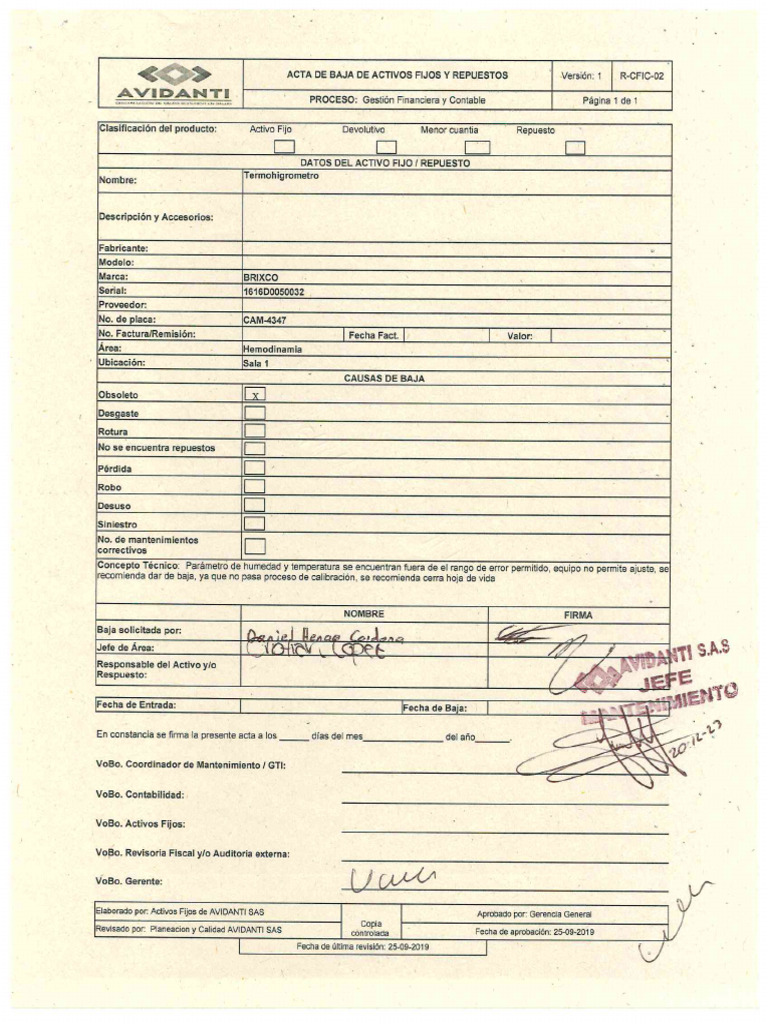 AVIDANTI
ACTA DE BAJA DE ACTIVOS FIJOS Y REPUESTOS
Versión: 1
R-CFIC-02
PROCESO: Gestión Financiera y Contable
Página 1 de 1
Clasificación del producto: Activo Fijo Devolutivo Menor cuantia Repuesto
DATOS DEL ACTIVO FIJO / REPUESTO
Nombre: Termohigrometro
Descripción y Accesorios:
Fabricante:
Modelo:
Marca: BRIXCO
Serial: 1616D0050032
Proveedor:
No. de placa: CAM-4347
No. Factura/Remisión: Fecha Fact. Valor:
Área: Hemodinamia
Ubicación: Sala 1
CAUSAS DE BAJA
Obsoleto x
Desgaste
Rotura
No se encuentra repuestos
Pérdida
Robo
Desuso
Siniestro
No. de mantenimientos
correctivos
Concepto Técnico: Parámetro de humedad y temperatura se encuentran fuera de el rango de error permitido, equipo no permite ajuste, se
recomienda dar de baja, ya que no pasa proceso de calibración, se recomienda cerra hoja de vida
NOMBRE FIRMA
Baja solicitada por: Daniel Henao Cardona
Jefe de Área: Cristian Lopez
Responsable del Activo y/o
Respuesto:
AVIDANTI S.A.S
JEFE
MANTENIMIENTO
Fecha de Entrada: Fecha de Baja:
En constancia se firma la presente acta a los ______ días del mes______________ del año______.
20-12-23
VoBo. Coordinador de Mantenimiento / GTI:
VoBo. Contabilidad:
VoBo. Activos Fijos:
VoBo. Revisoria Fiscal y/o Auditoria externa:
VoBo. Gerente:
Elaborado por: Activos Fijos de AVIDANTI SAS
Revisado por: Planeacion y Calidad AVIDANTI SAS
Copia
controlada
Aprobado por: Gerencia General
Fecha de aprobación: 25-09-2019
Fecha de última revisión: 25-09-2019